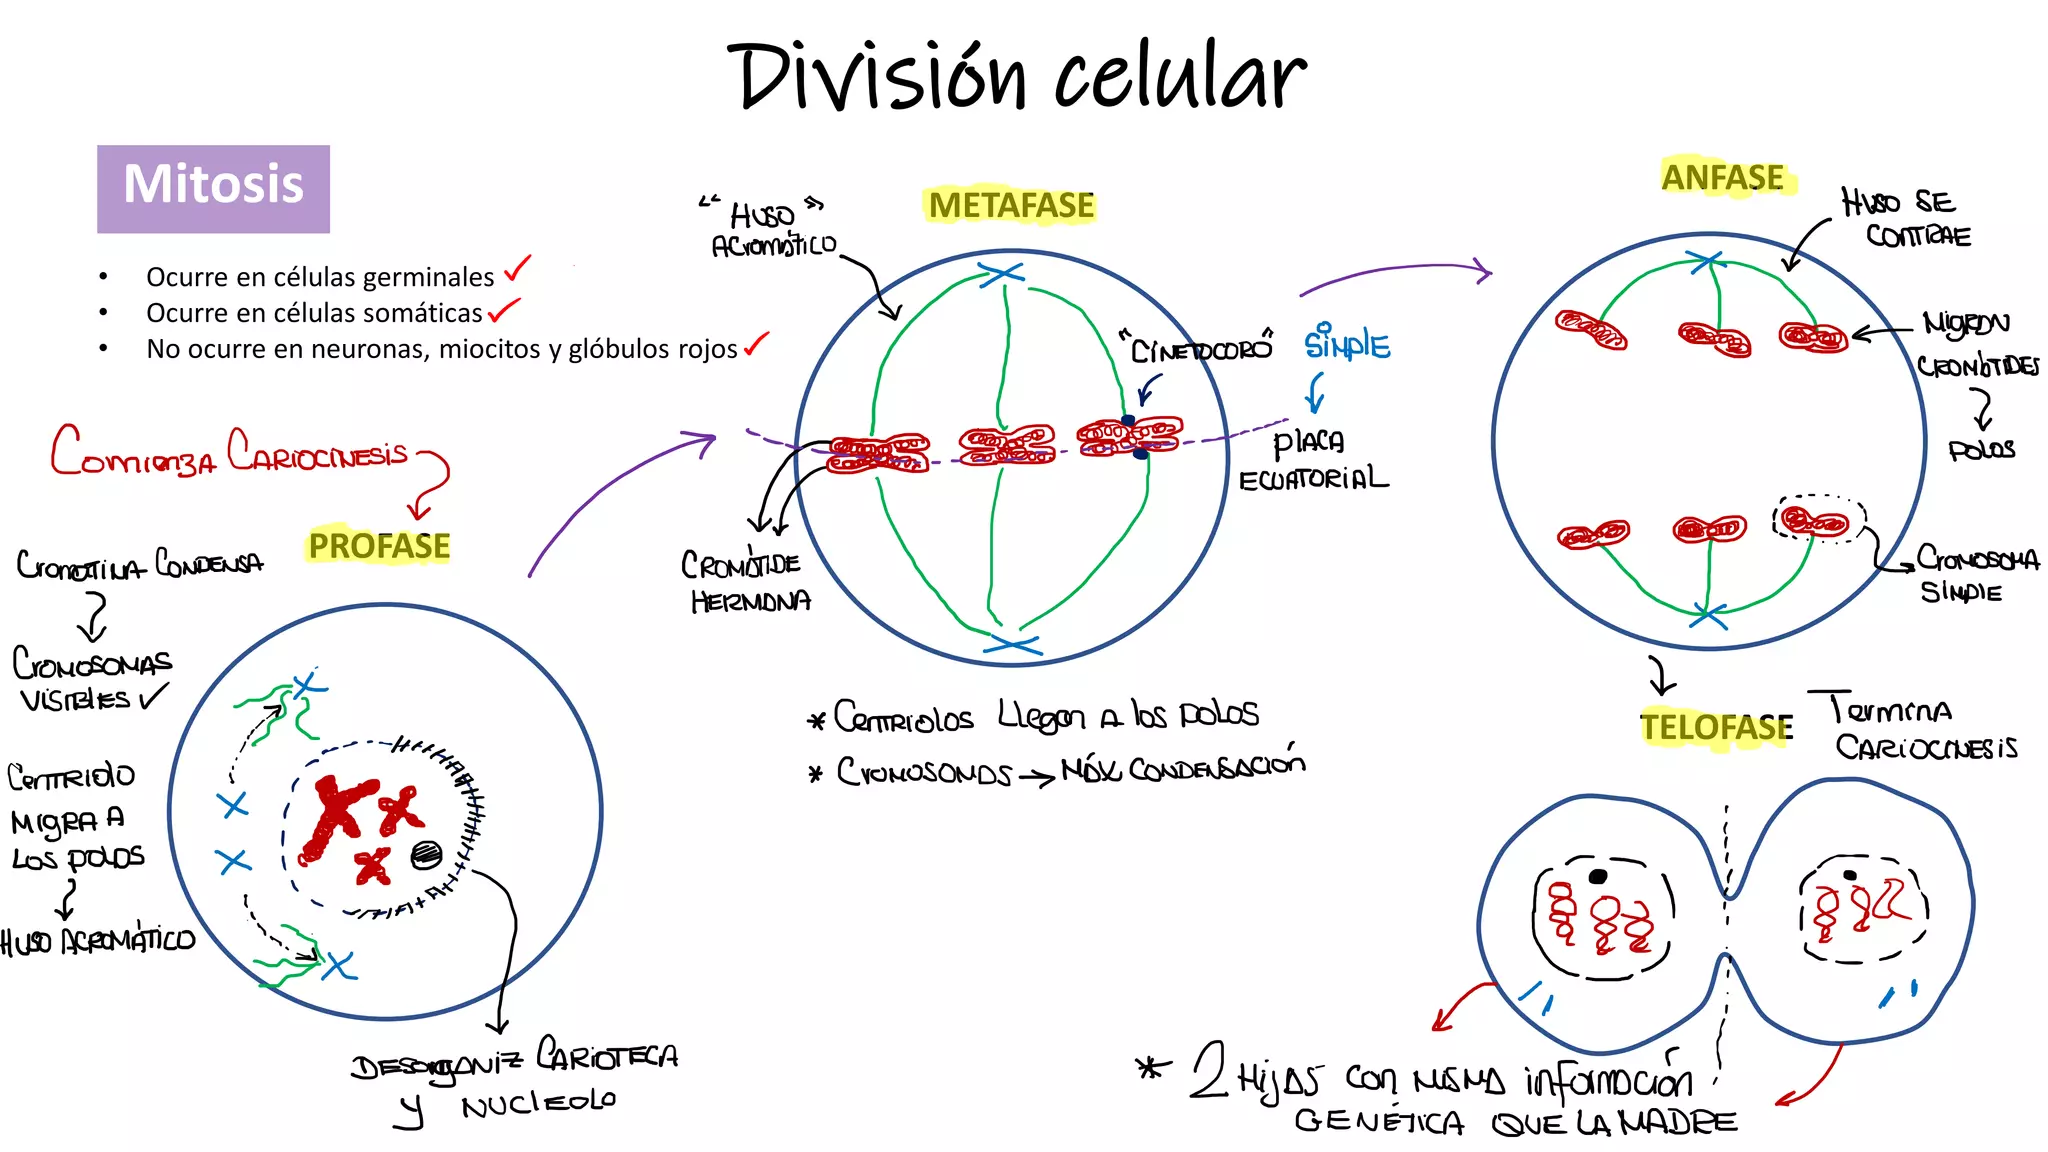 División celular
Mitosis
• Ocurre en células germinales
• Ocurre en células somáticas
• No ocurre en neuronas, miocitos y glóbulos rojos
COMIENZA CARIOCINESIS
PROFASE
CROMATINA CONDENSA
CROMOSOMAS
VISIBLES
CENTRIOLO
MIGRA A
LOS POLOS
HUSO ACROMÁTICO
DESORGANIZ CARIOTECA
Y NUCLEOLO
METAFASE
"HUSO"
ACROMÁTICO
"CINETOCORO"
SIMPLE
PLACA
ECUATORIAL
CROMÁTIDE
HERMANA
* CENTRIOLOS LLEGAN A LOS POLOS
* CROMOSOMAS → MÁX CONDENSACIÓN
ANFASE
HUSO SE
CONTRAE
MIGRAN
CROMÁTIDES
POLOS
CROMOSOMA
SIMPLE
TELOFASE
TERMINA
CARIOCINESIS
* 2 HIJAS CON MISMA INFORMACIÓN
GENÉTICA QUE LA MADRE